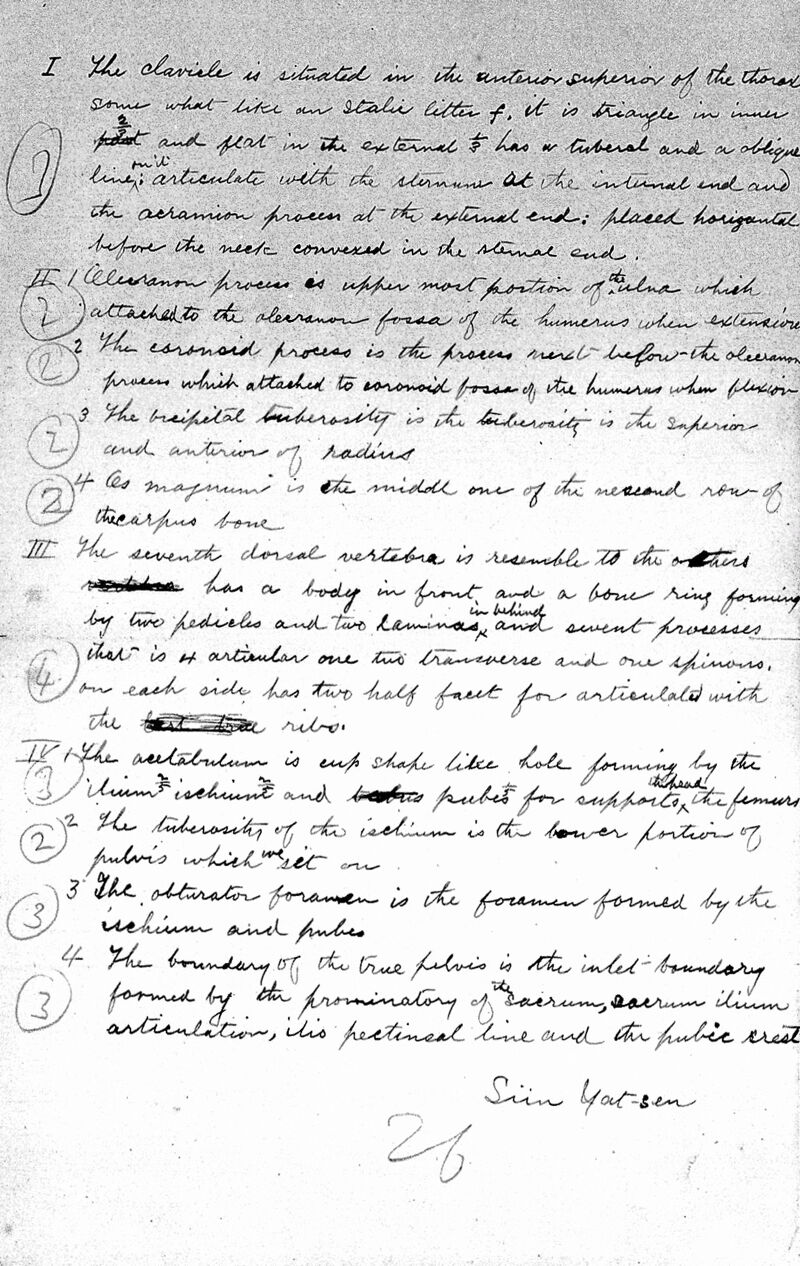 I The clavicle is situated in the anterior superior of the thorax
some what like an Italic litter f. it is triangle in inner
2/3 and flat in the external 1/3 has a tubercl and a oblique
line on it: articulate with the sternum at the internal end and
3
the acramion process at the external end: placed horizantal
before the neck convexed in the sternal end.
II 1 Olecranon process is upper most portion of the ulna which
2
attached to the olecranon fossa of the humerus when extension
2 The coronoid process is the process next before the olecranon
2
process which attached to coronoid fossa of the humerus when flexion
3 The bicipital tuberosity is the tuberosity is the superior
2
and anterior of radius
4 Os magnum is the middl one of the second row of
2
the carpus bone
III The seventh dorsal vertebra is resemble to the others
has a body in front and a bone ring forming
by two pedicles and two laminas in behind, and sevent processes
that is 4 articular one two transverse and one spinous.
4
on each side has two half facet for articulated with
the ribs.
IV 1 The acetabulum is cup shape like hole forming by the
3
ilium 2/5 ischium 2/5 and pubes 1/5 for supports the head the femurs
2 The tuberosity of the ischium is the lower portion of
2
pulvis which we sit on
3 The obturator foramen is the foramen formed by the
3
ischium and pubes
4 The boundary of the true pelvis is the inlet boundary
3
formed by the prominatory of the sacrum, sacrum ilium
articulation, ilio pectinsal line and the pubic crest
Siin Yat-sen
26